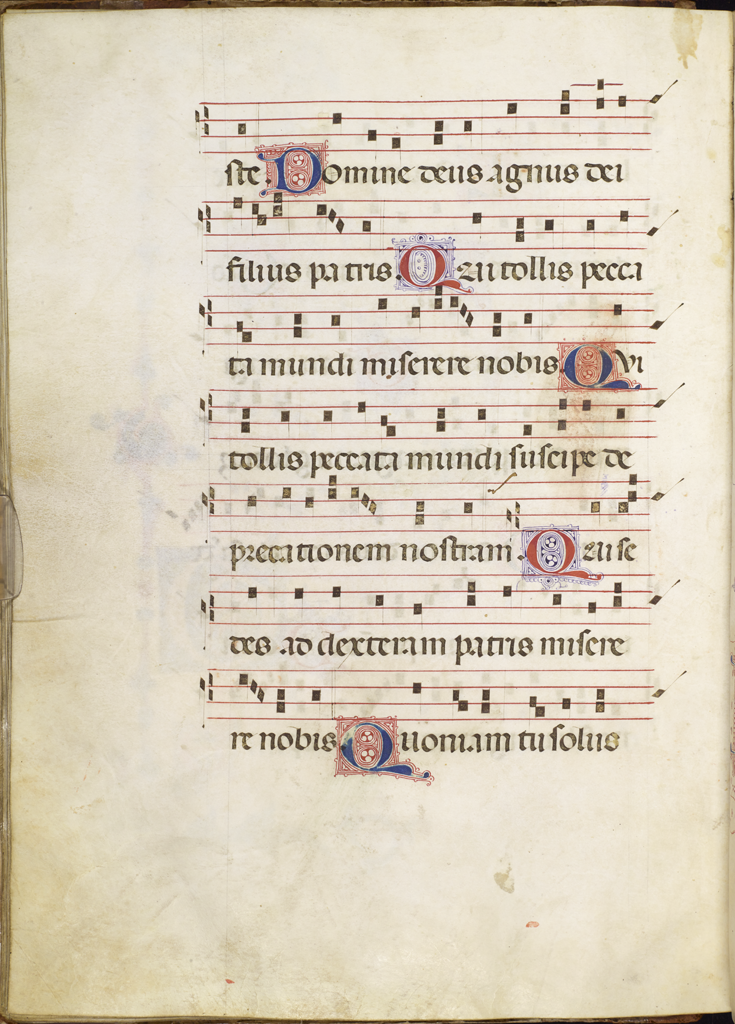 ste Domine deus agnus dei
filius patris Qui tollis pecca
ta mundi miserere nobis Qvi
tollis peccata mundi suscipe de
precationem nostram Qui se
des ad dexteram patris misere
re nobis Quoniam tu solus